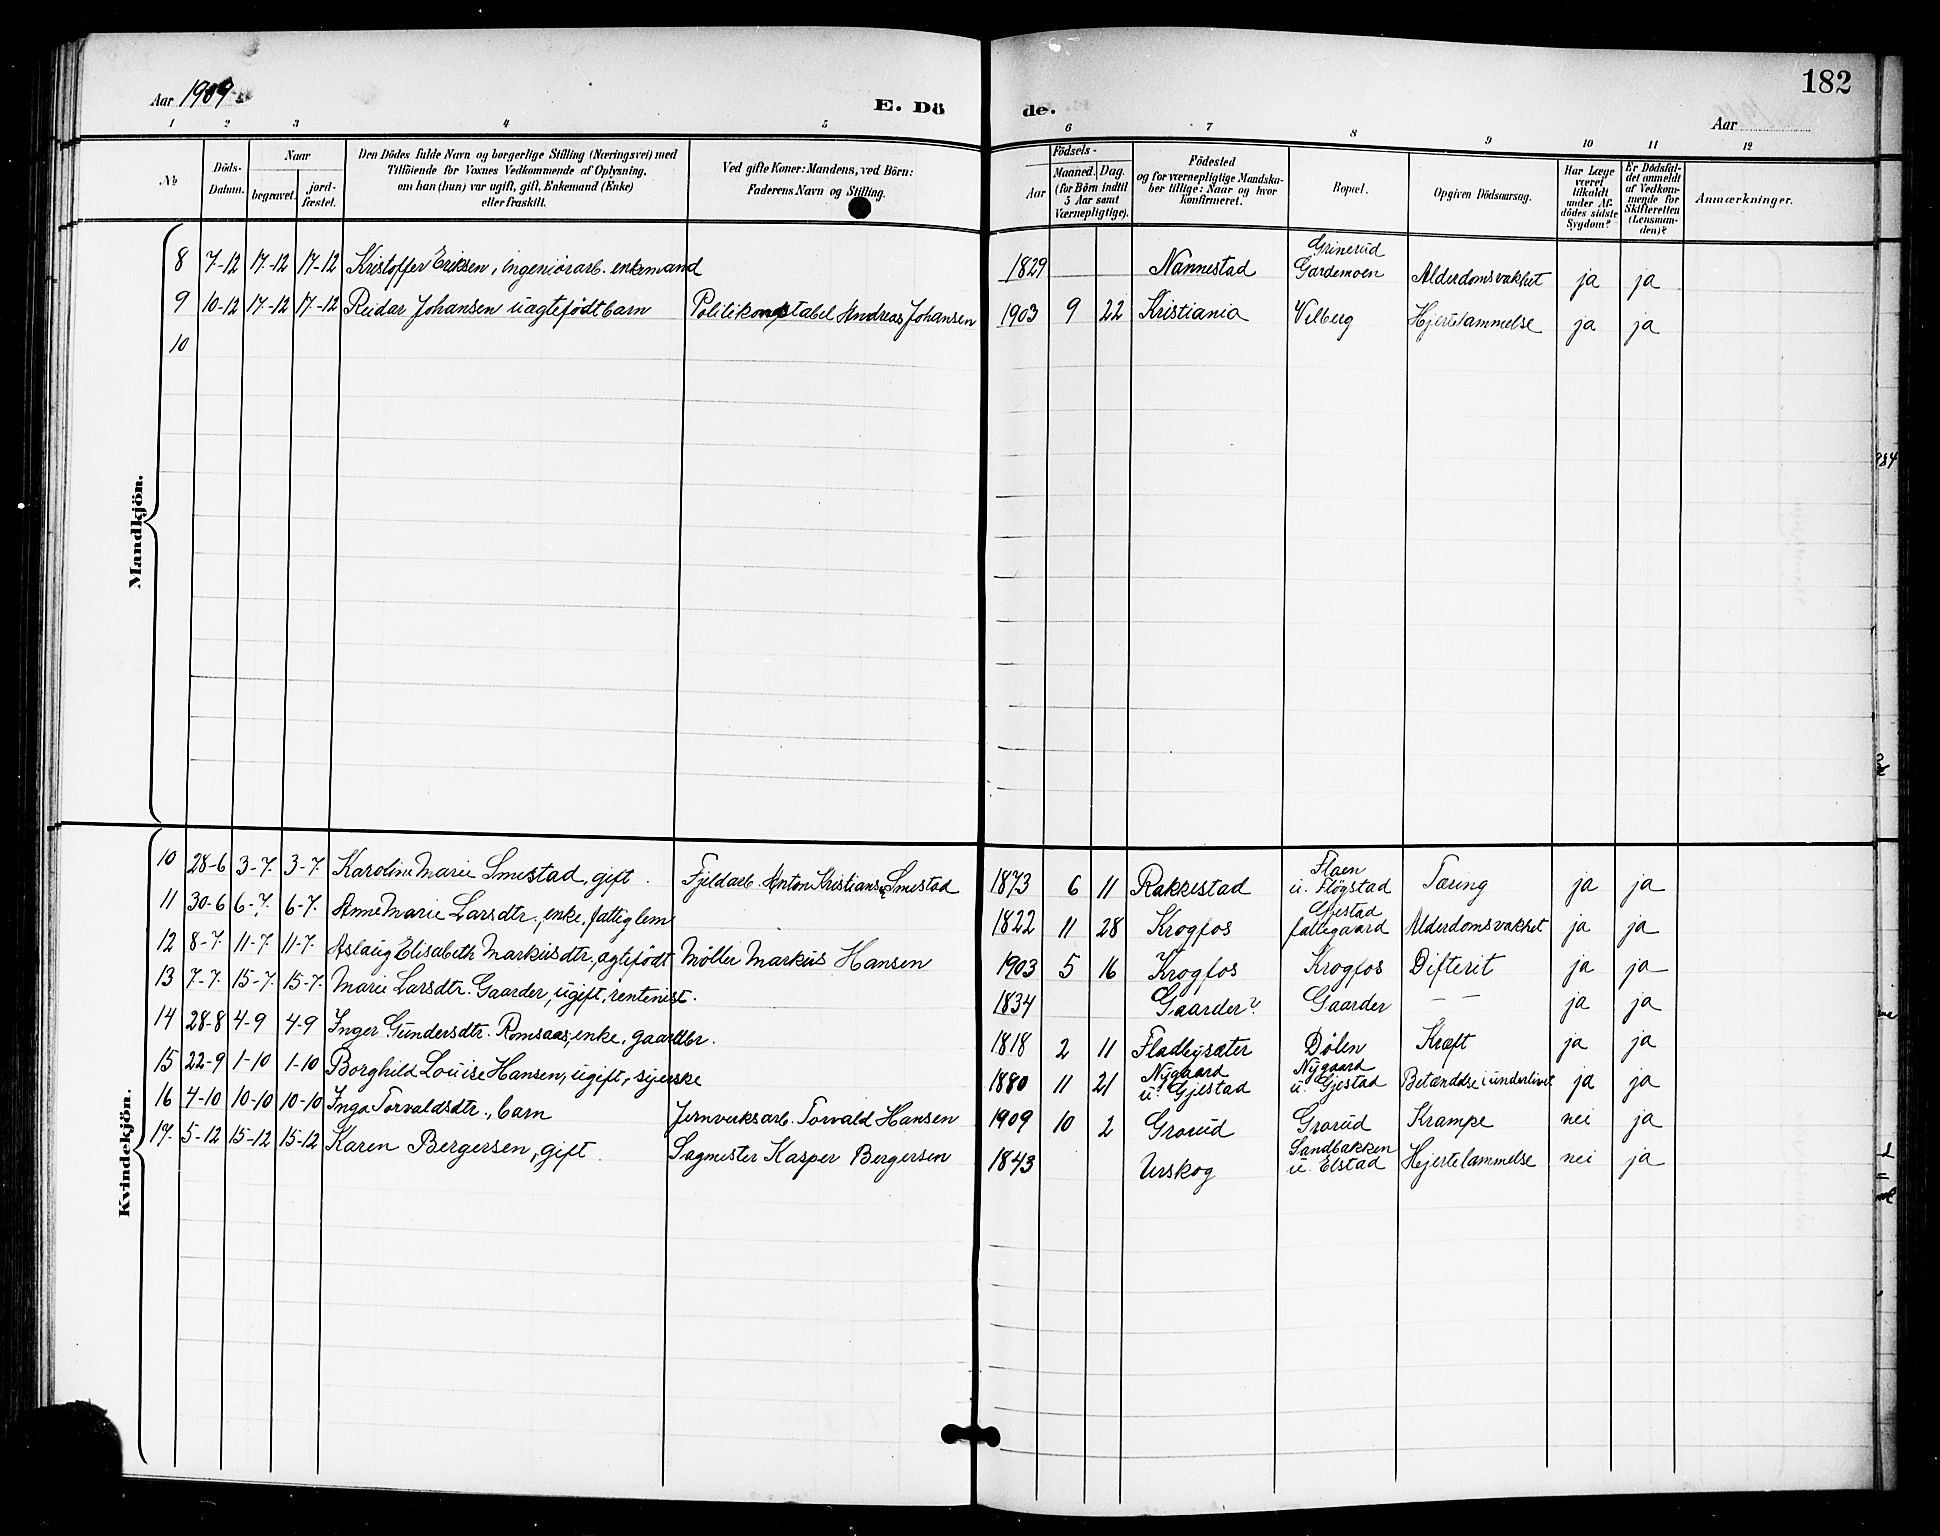 Aar 1909.
E. Dö
de.
182
Aar
1 2 3 4 5 6 7 8 9 10 11 12
№
Döds-Datum.
Naar
begravet.
jord-fæstet.
Den Dödes fulde Navn og borgerlige Stilling (Næringsvei) med
Tilföiende for Voxnes Vedkommende af Oplysning,
om han (hun) var ugift, gift, Enkemand (Enke)
eller fraskilt.
Ved gifte Koner: Mandens, ved Börn:
Faderens Navn og Stilling.
Födsels-
Aar
Maaned. Dag.
(for Börn indtil
5 Aar samt
Værnepligtige).
Födested
og for værnepligtige Mandska-
ber tillige: Naar og hvor
konfirmeret.
Bopæl.
Opgiven Dödsaarsag.
Har Læge
været
tilkaldt
under Af-
dödes sidste
Sygdom?
Er Dödsfal-
det anmeldt
af Vedkom-
mende for
Skifteretten
(Lensman-
den)?
Anmærkninger.
Mandkjön.
8 7-12 17-12 17-12 Kristoffer Eriksen, ingeniörarb. enkemand 1829 Nannestad Grinerud Gardemoen Alderdomsvakhet ja ja
9 10-12 17-12 17-12 Reidar Johansen uægtefödt barn Politikonstabel Andreas Johansen 1903 9 22 Kristiania Vilberg Hjertelammelse ja ja
10
Kvindekjön.
10 28-6 3-7. 3-7. Karoline Marie Smestad, gift. Fjeldarb. Anton Kristians. Smestad 1873 6 11 Rakkestad Flaen u. Fløgstad Tæring ja ja
11 30-6 6-7. 6-7. Anne Marie Larsdtr., enke, fattiglem 1822 11 28 Krogfos Gjestad fattigaard Alderdomsvakhet ja ja
12 8-7. 11-7. 11-7. Aslaug Elisabeth Markusdtr., ægtefödt Møller Markus Hansen 1903 5 16 Krogfos Krogfos Difterit ja ja
13 7-7. 15-7. 15-7. Marie Larsdtr. Gaarder, ugift, rentenist. 1834 Gaarder? Gaarder — — ja ja
14 28-8 4-9 4-9 Inger Gundersdtr. Romsaas, enke, gaardbr. 1818 2 11 Fladbysæter Dølen Kræft ja ja
15 22-9 1-10 1-10 Borghild Louise Hansen, ugift, syerske 1880 11 21 Nygaard u. Gjestad Nygaard u. Gjestad Betændelse i underlivet ja ja
16 4-10 10-10 10-10 Inga Torvaldsdtr., barn Jernverksarb. Torvald Hansen 1909 10 2 Grorud Grorud Krampe nei ja
17. 5-12 15-12 15-12 Karen Bergersen, gift. Sagmester Kasper Bergersen 1843 Urskog Sandbakken u. Elstad Hjertelammelse nei ja